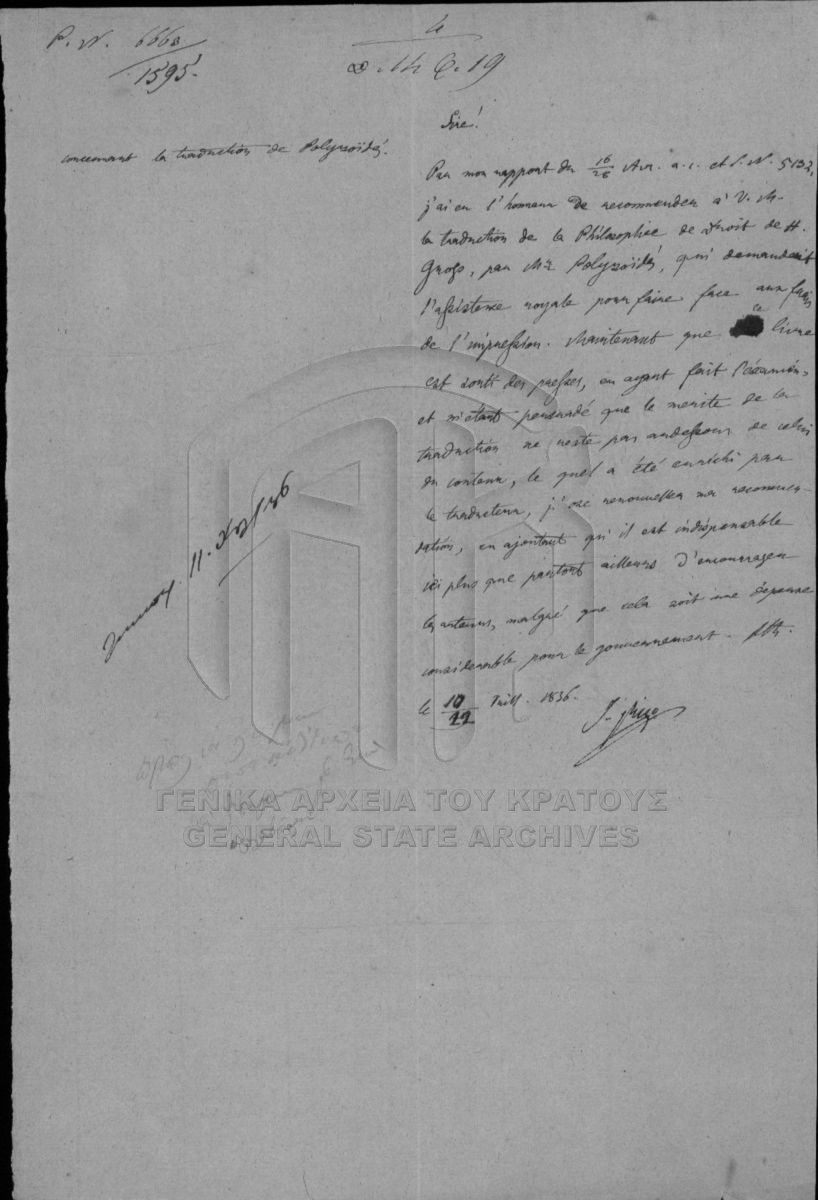 P. N. 6668
1595.
4
D. 14 6. 19
concernant la traduction de Polyzoïdés.
Sire!
Par mon rapport du 16/28 Avr. a. c. et P. N. 5132,
j'ai eu l'honneur de recommender à V. M.
la traduction de la Philosophie de droit de H.
Gross, par Mr. Polyzoïdés, qui demandait
l'assistence royale pour faire face aux frais
de l'impression. Maintenant que ce livre
est sorti des presses, en ayant fait l'examen,
et m'étant persuadé que le merite de la
traduction ne reste pas audessous de celui
du contenu, le quel a été enrichi par
le traducteur, j'ose renouveller ma recommen-
dation, en ajoutant qu'il est indispensable
ici plus que partout ailleurs d'encourager
les auteurs, malgré que cela soit une depense
considerable pour le gouvernement. Ath.
le 10/22 Juill. 1836.
J. Rizo
11.
ΓΕΝΙΚΑ ΑΡΧΕΙΑ ΤΟΥ ΚΡΑΤΟΥΣ
GENERAL STATE ARCHIVES